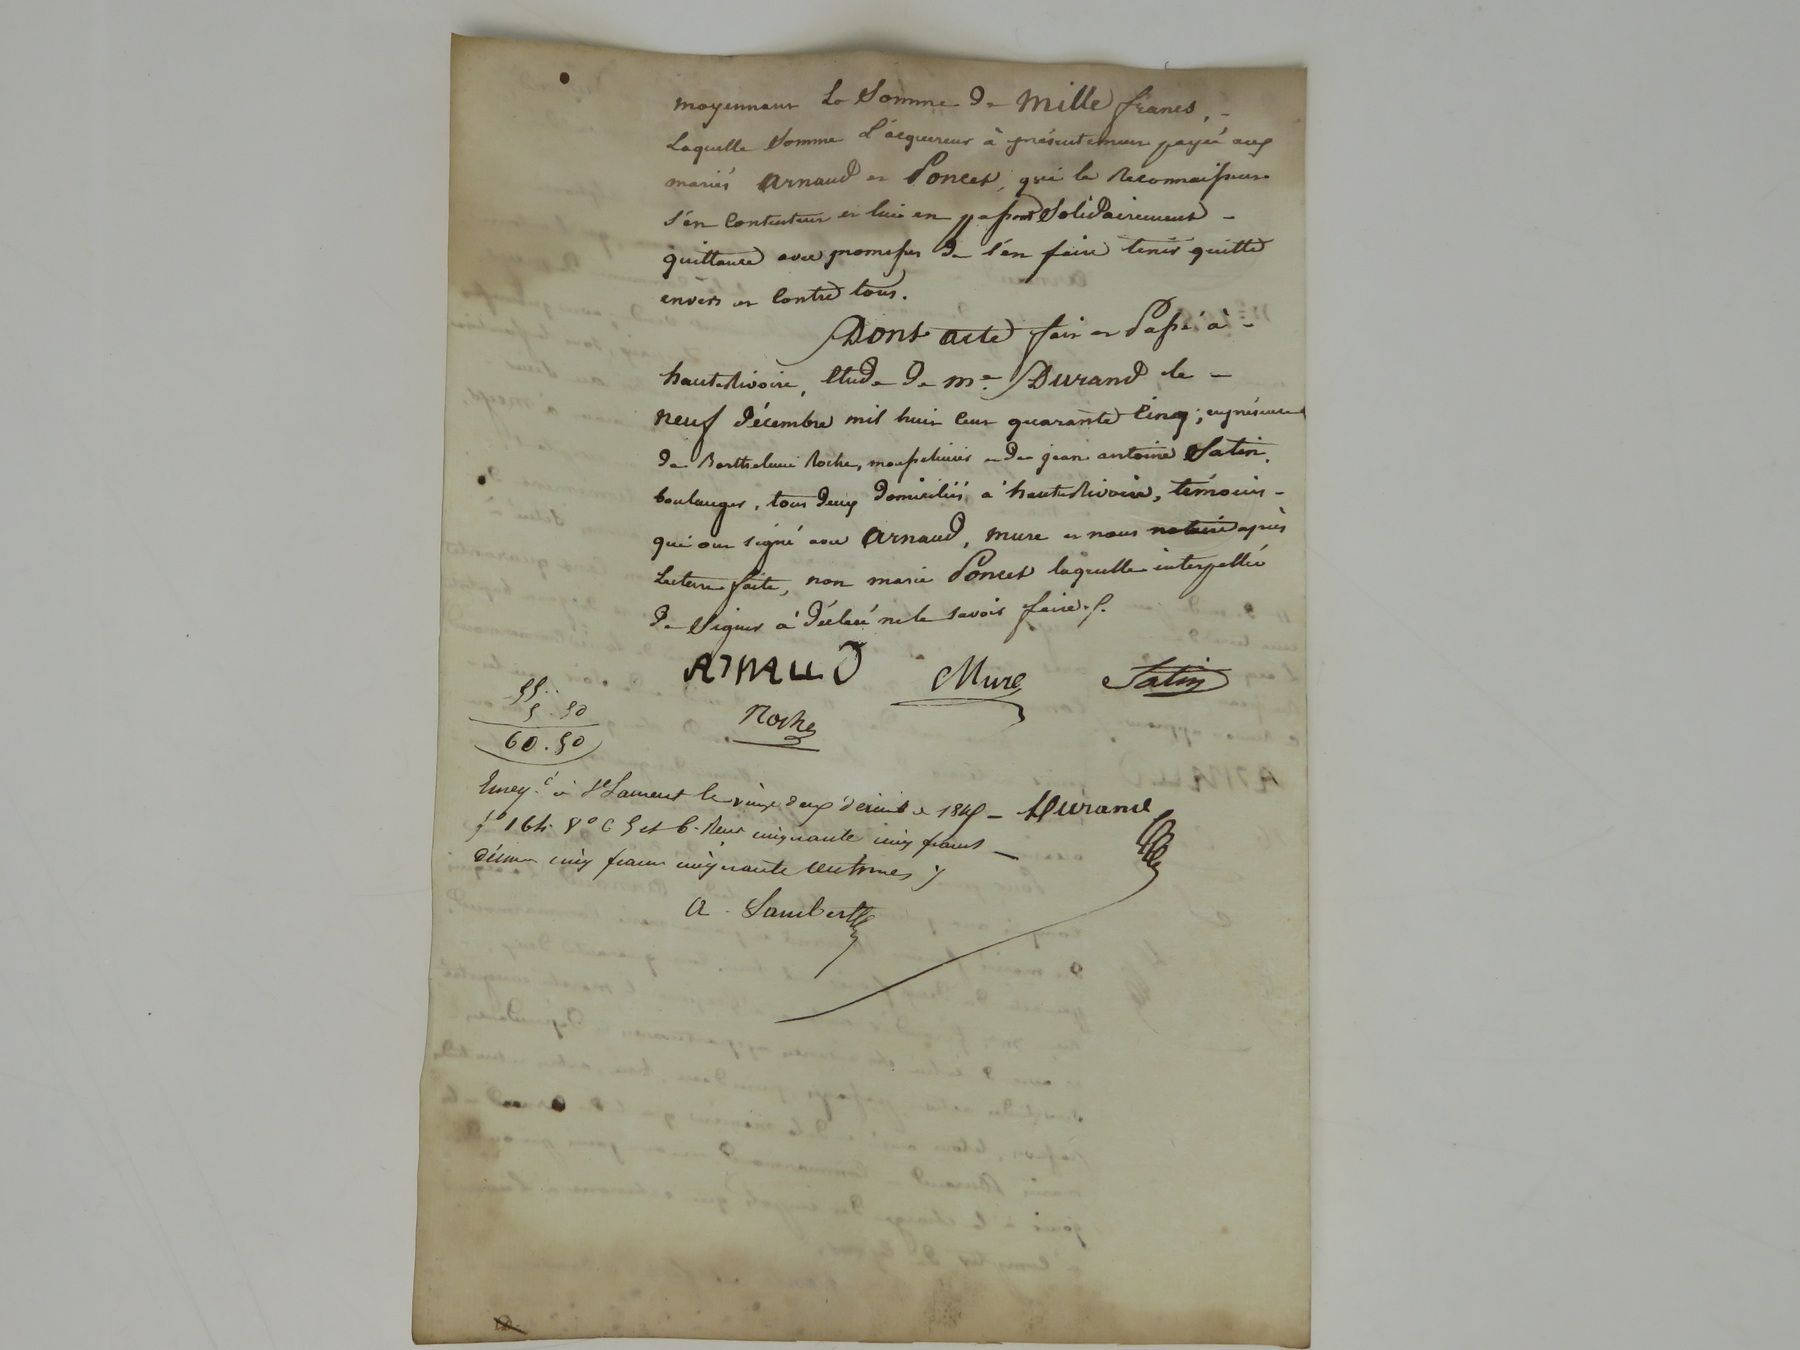 moyennant la Somme de mille francs,-
Laquelle Somme l'acquereur à présentement payée aux
mariés Arnaud et Poncet, qui le Reconnaissent
s'en contentent et lui en passent Solidairement -
quittance avec promesse de s'en faire tenir quitte
envers et contre tous.
Dont acte fait et Passé à -
hauterivoire, étude de me. Durand le -
neuf décembre mil huit cent quarante cinq; en présence
de Barthelemi Roche, et de jean antoine Satin,
boulanger, tous deux domiciliés à hauterivoire, témoins -
qui ont signé avec Arnaud, mure et nous notaire après
Lecture faite, non marie Poncet laquelle interpellée
de Signer à déclaré ne le savoir faire./.
ARNAUD Mure Satin
55..
5.50 Roche
60.50
Enreg.é à St Laurent le vingt deux décembre 1845 - Durand
fo 164 Vo C 5 et 6. Reçu cinquante cinq francs
décime cinq francs cinquante centimes
A. Lambert